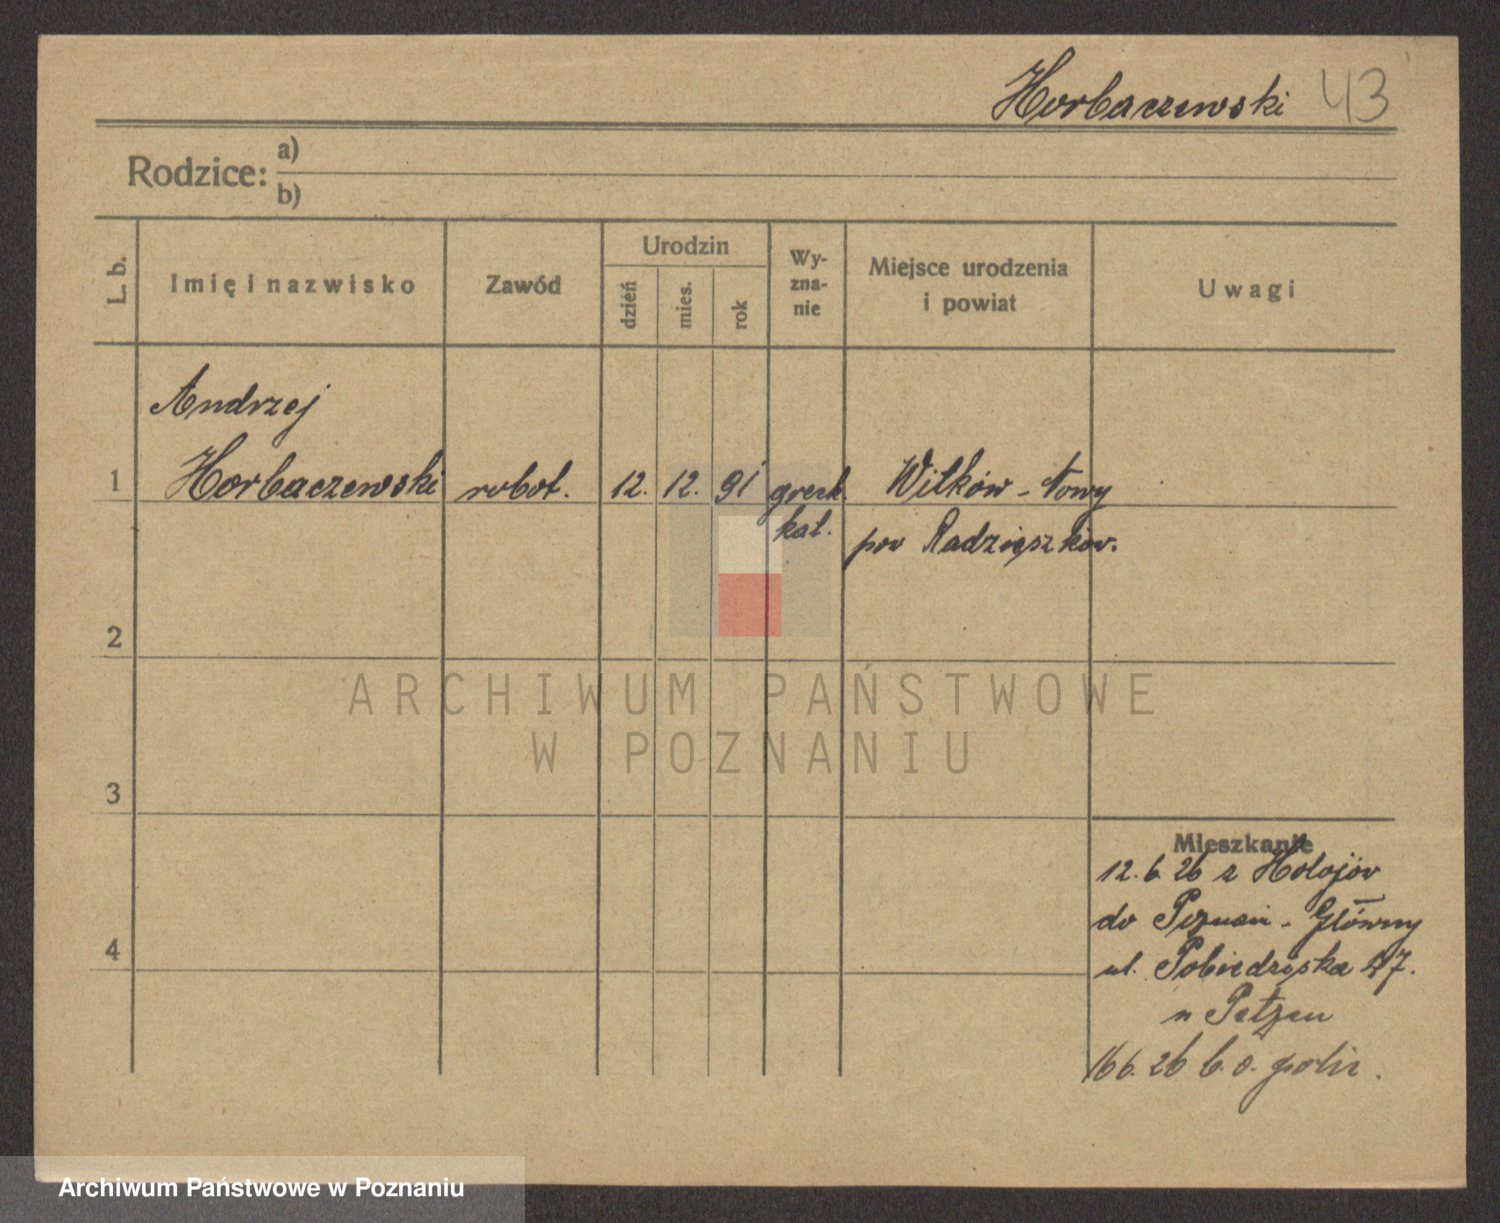 Horbaczewski 43
Rodzice: a)
b)
L. b.
Imię i nazwisko
Zawód
Urodzin
dzień
mies.
rok
Wy-
zna-
nie
Miejsce urodzenia
i powiat
Uwagi
Andrzej
1 Horbaczewski robot. 12. 12. 91 greck. Witków - Nowy
kat. pow
2
3
4
Mieszkanie
12.6.26 z Hołojów
do Poznań - Główny
ul. Pobiedziska 27.
16 6. 26 b. o.
ARCHIWUM PAŃSTWOWE
W POZNANIU
Archiwum Państwowe w Poznaniu